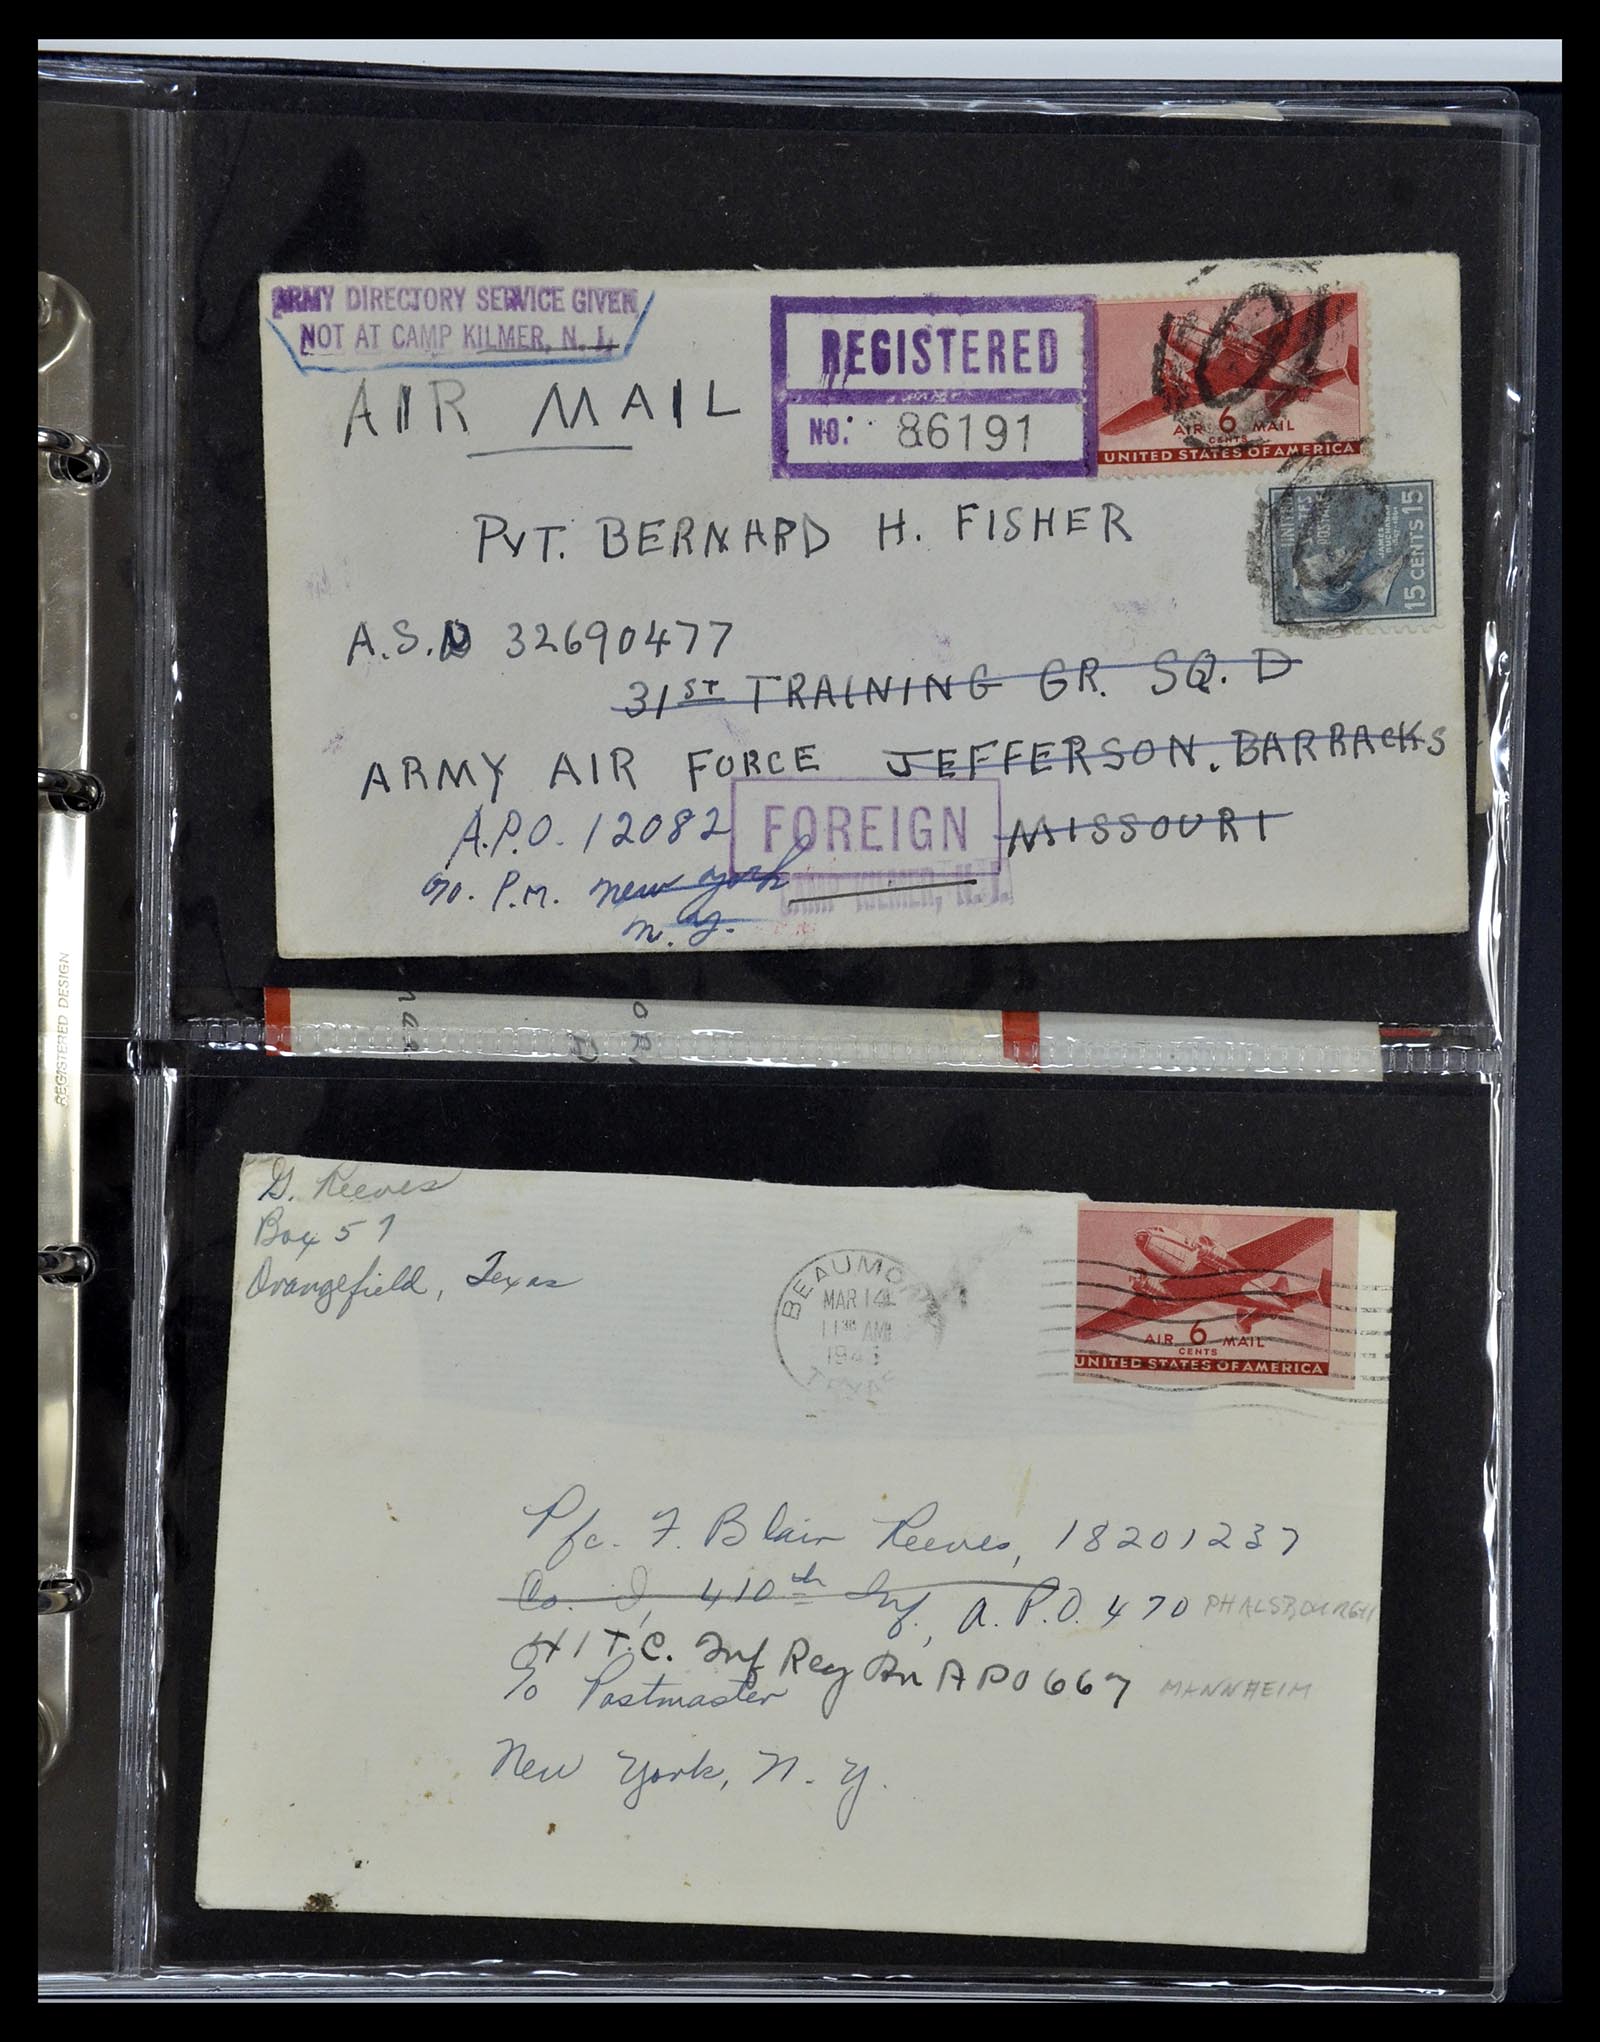 ARMY DIRECTORY SERVICE GIVEN
NOT AT CAMP KILMER, N. J.
AIR MAIL
REGISTERED
NO: 86191
AIR 6 MAIL
CENTS
UNITED STATES OF AMERICA
UNITED STATES POSTAGE
JAMES BUCHANAN
15 CENTS 15
PVT. BERNARD H. FISHER
A.S.N 32690477
31ST TRAINING GR. SQ. D
ARMY AIR FORCE JEFFERSON. BARRACKS
MISSOURI
A.P.O. 12082
FOREIGN
c/o. P.M. New York
N. Y.
CAMP KILMER, N.J.
REGISTERED DESIGN
G. Reeves
Box 57
Orangefield, Texas
BEAUMONT
MAR 14
11 AM
TEXAS
AIR 6 MAIL
CENTS
UNITED STATES OF AMERICA
Pfc. F. Blair Reeves, 18201237
Co. I, 410th Inf., A.P.O. 470 PHALSBOURGH
Inf Reg APO 667 MANNHEIM
c/o Postmaster
New York, N. Y.